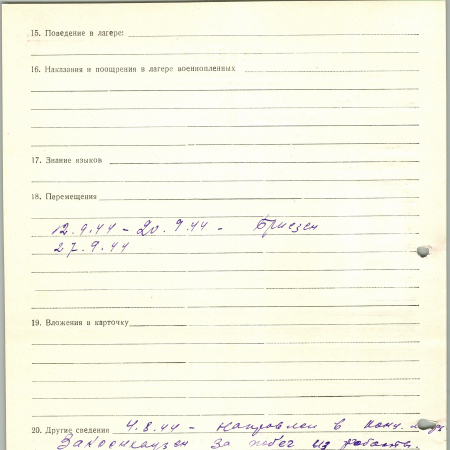 15. Поведение в лагере:
16. Наказания и поощрения в лагере военнопленных
17. Знание языков
18. Перемещения
12.9.44 - 20.9.44 - Бриезен
27.9.44
19. Вложения в карточку
20. Другие сведения 4.8.44 - Направлен в конц.
Заксенхаузен за побег из работы.